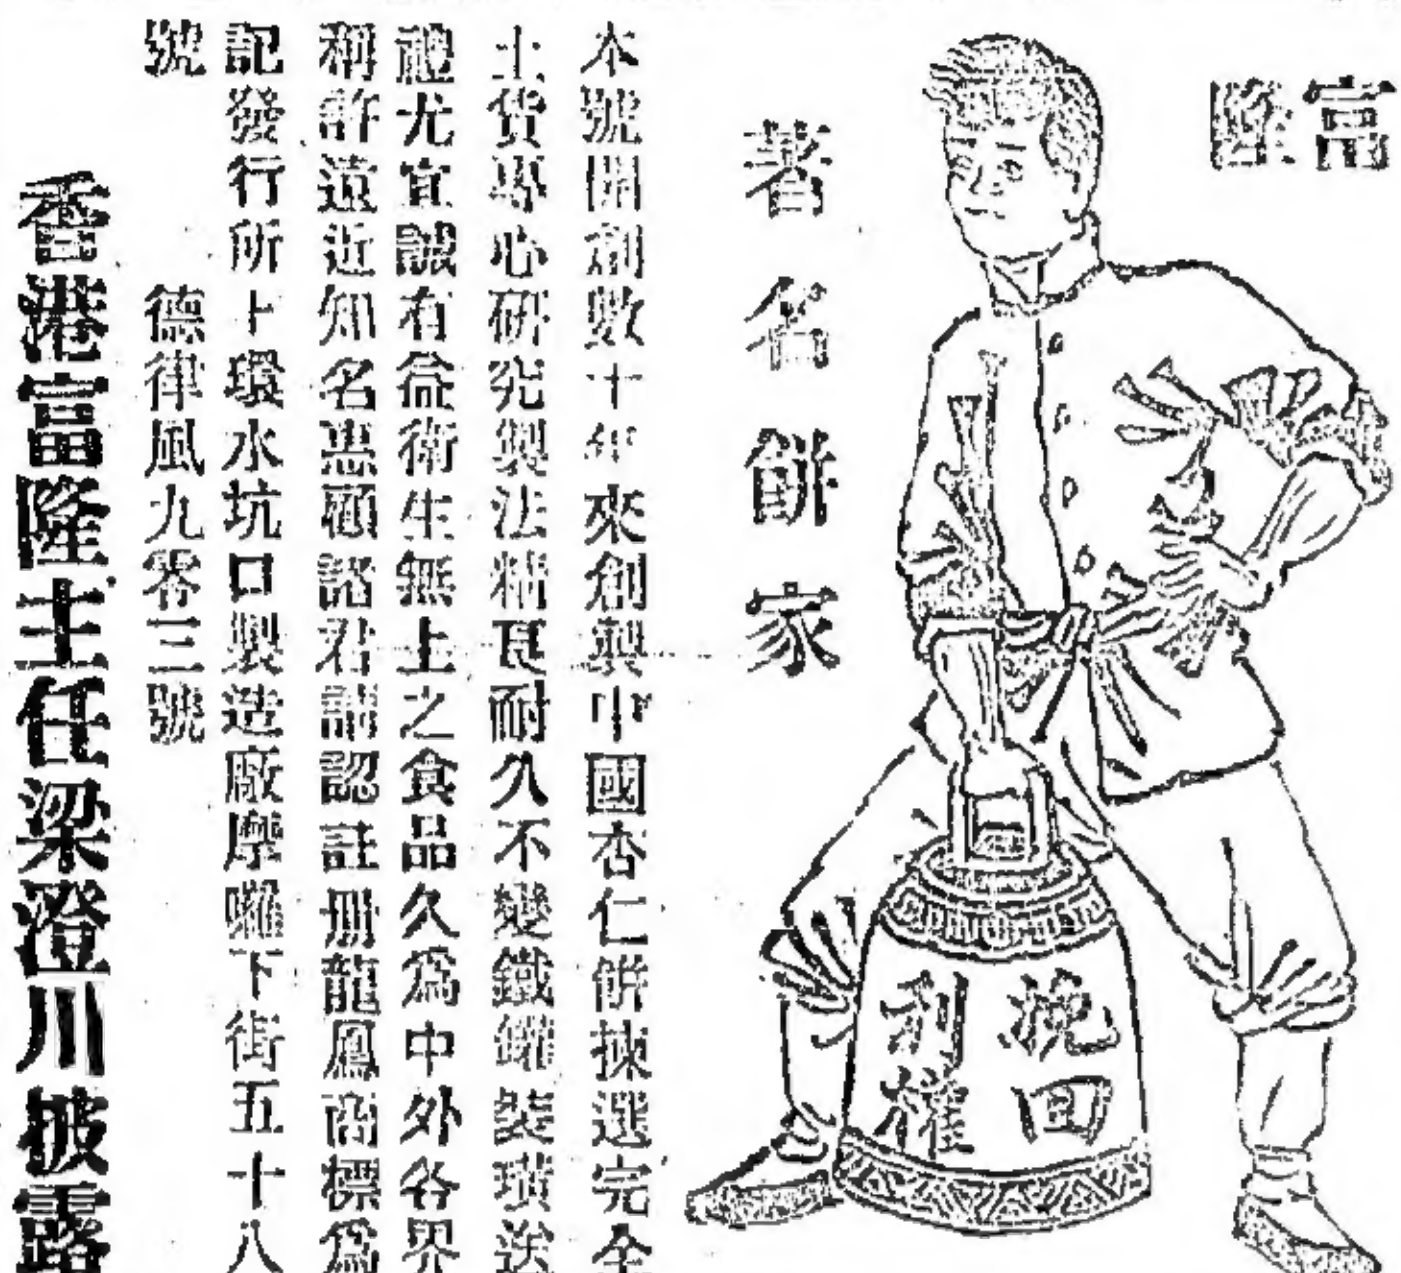 富隆
挽回
利權
著名餅家
本號開創數十年來創製中國杏仁餅揀選完全
土貨專心研究製法精良耐久不變鐵罐裝璜送
禮尤宜誠有益衛生無上之食品久爲中外各界
稱許遠近知名惠顧諸君請認註册龍鳳商標爲
記發行所上環水坑口製造廠摩囉下街五十八
號　德律風九零三號
香港富隆士任梁澄川披露